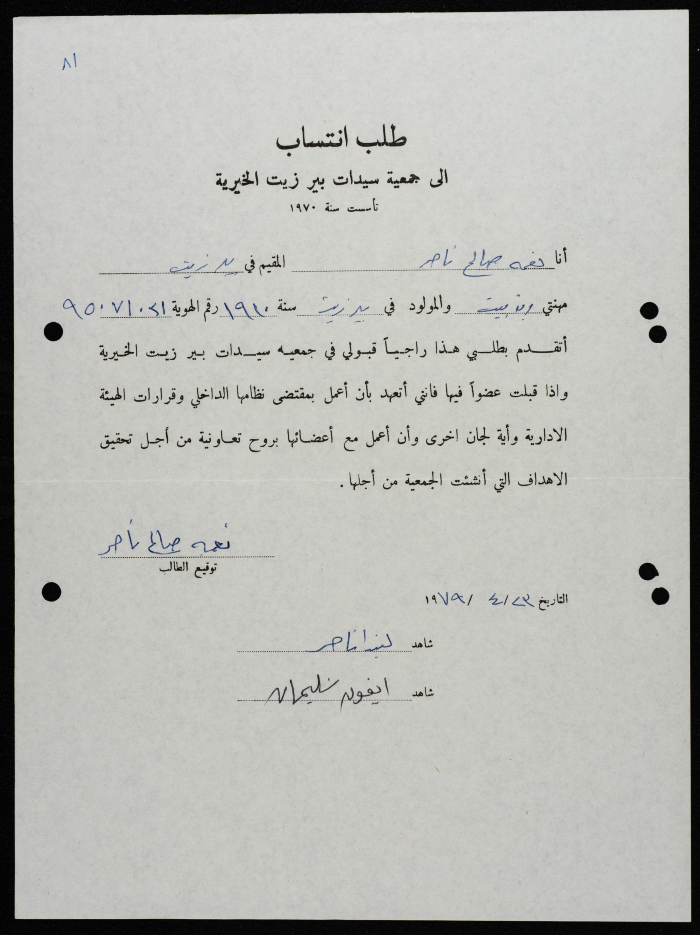 ٨١
طلب انتساب
الى جمعية سيدات بير زيت الخيرية
تأسست سنة ١٩٧٠
أنا نعمه صالح ناصر المقيم في بير زيت
مهنتي ربة بيت والمولود في بير زيت سنة ١٩١٠ رقم الهوية
أتقدم بطلبي هذا راجياً قبولي في جمعيه سيدات بير زيت الخيرية
واذا قبلت عضواً فيها فانني أتعهد بأن أعمل بمقتضى نظامها الداخلي وقرارات الهيئة
الادارية وأية لجان اخرى وأن أعمل مع أعضائها بروح تعاونية من أجل تحقيق
الاهداف التي أنشئت الجمعية من أجلها .
نعمه صالح ناصر
توقيع الطالب
التاريخ ٢٣/ ٤ / ١٩٧٩
شاهد ناصر
شاهد ايفون سليمان